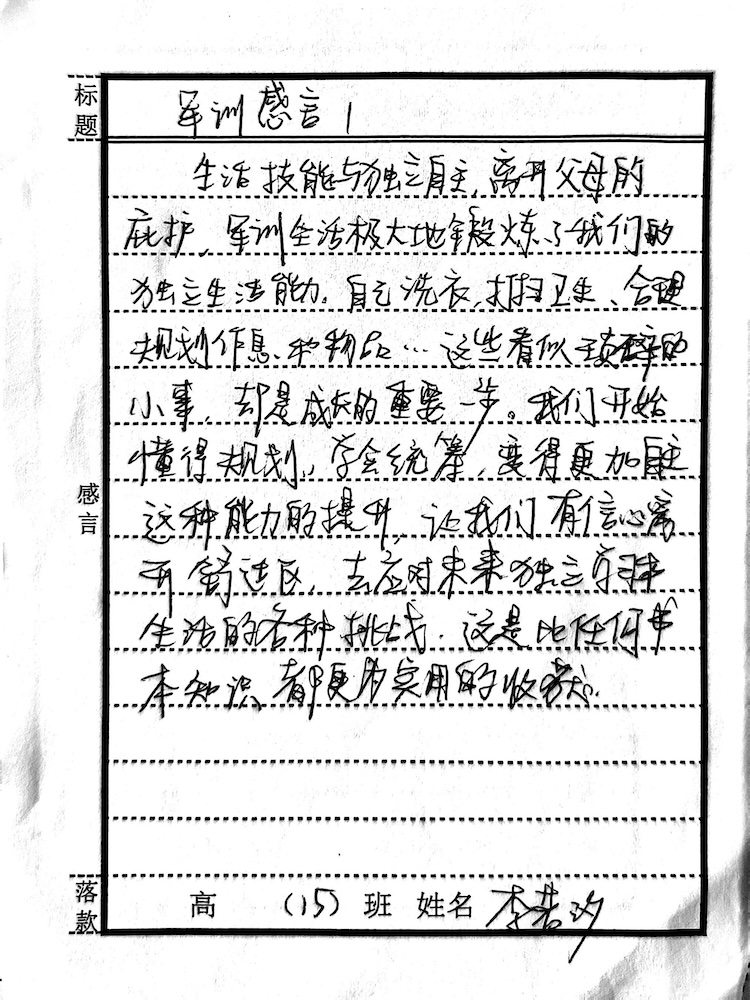 标题
军训感言1
生活技能与独立自主,离开父母的
庇护,军训生活极大地锻炼了我们的
独立生活能力。自己洗衣,打扫卫生、合理
规划作息、和物品…这些看似琐碎的
小事,却是成长的重要一步。我们开始
懂得规划,学会统筹,变得更加自主
感言
这种能力的提升,让我们有信心离
开舒适区,去应对未来独立学习和
生活的各种挑战.这是比任何书
本知识都更为实用的收获.
落款
高 (15) 班 姓名 李若汐